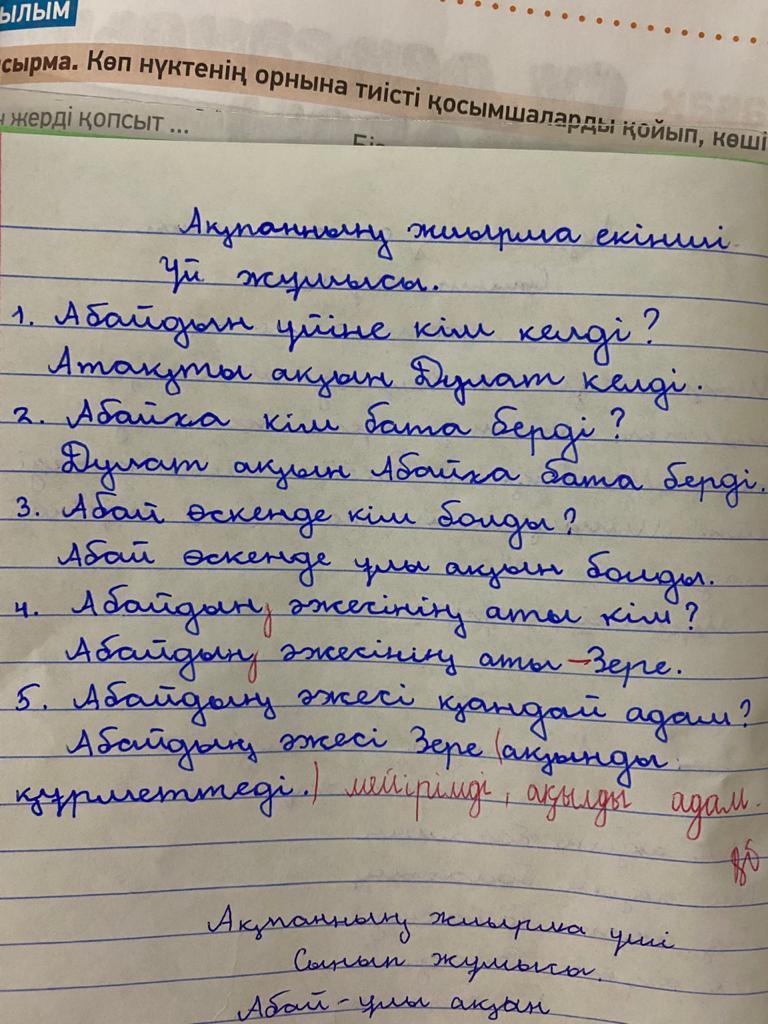 ЫЛЫМ
сырма. Көп нүктенің орнына тиісті қосымшаларды қойып, көші
жерді қопсыт ...
Ақпанның жиырма екінші
Үй жұмысы.
1. Абайдын үйіне кім келді?
Атақты ақын Дулат келді.
2. Абайға кім бата берді?
Дулат ақын Абайға бата берді.
3. Абай өскенде кім болды?
Абай өскенде ұлы ақын болды.
4. Абайдың әжесінің аты кім?
Абайдың әжесінің аты – Зере.
5. Абайдың әжесі қандай адам?
Абайдың әжесі Зере (ақынды
құрметтеді.) мейірімді, ақылды адам.
Ақпанның жиырма үші
Сынып жұмысы.
Абай - ұлы ақын